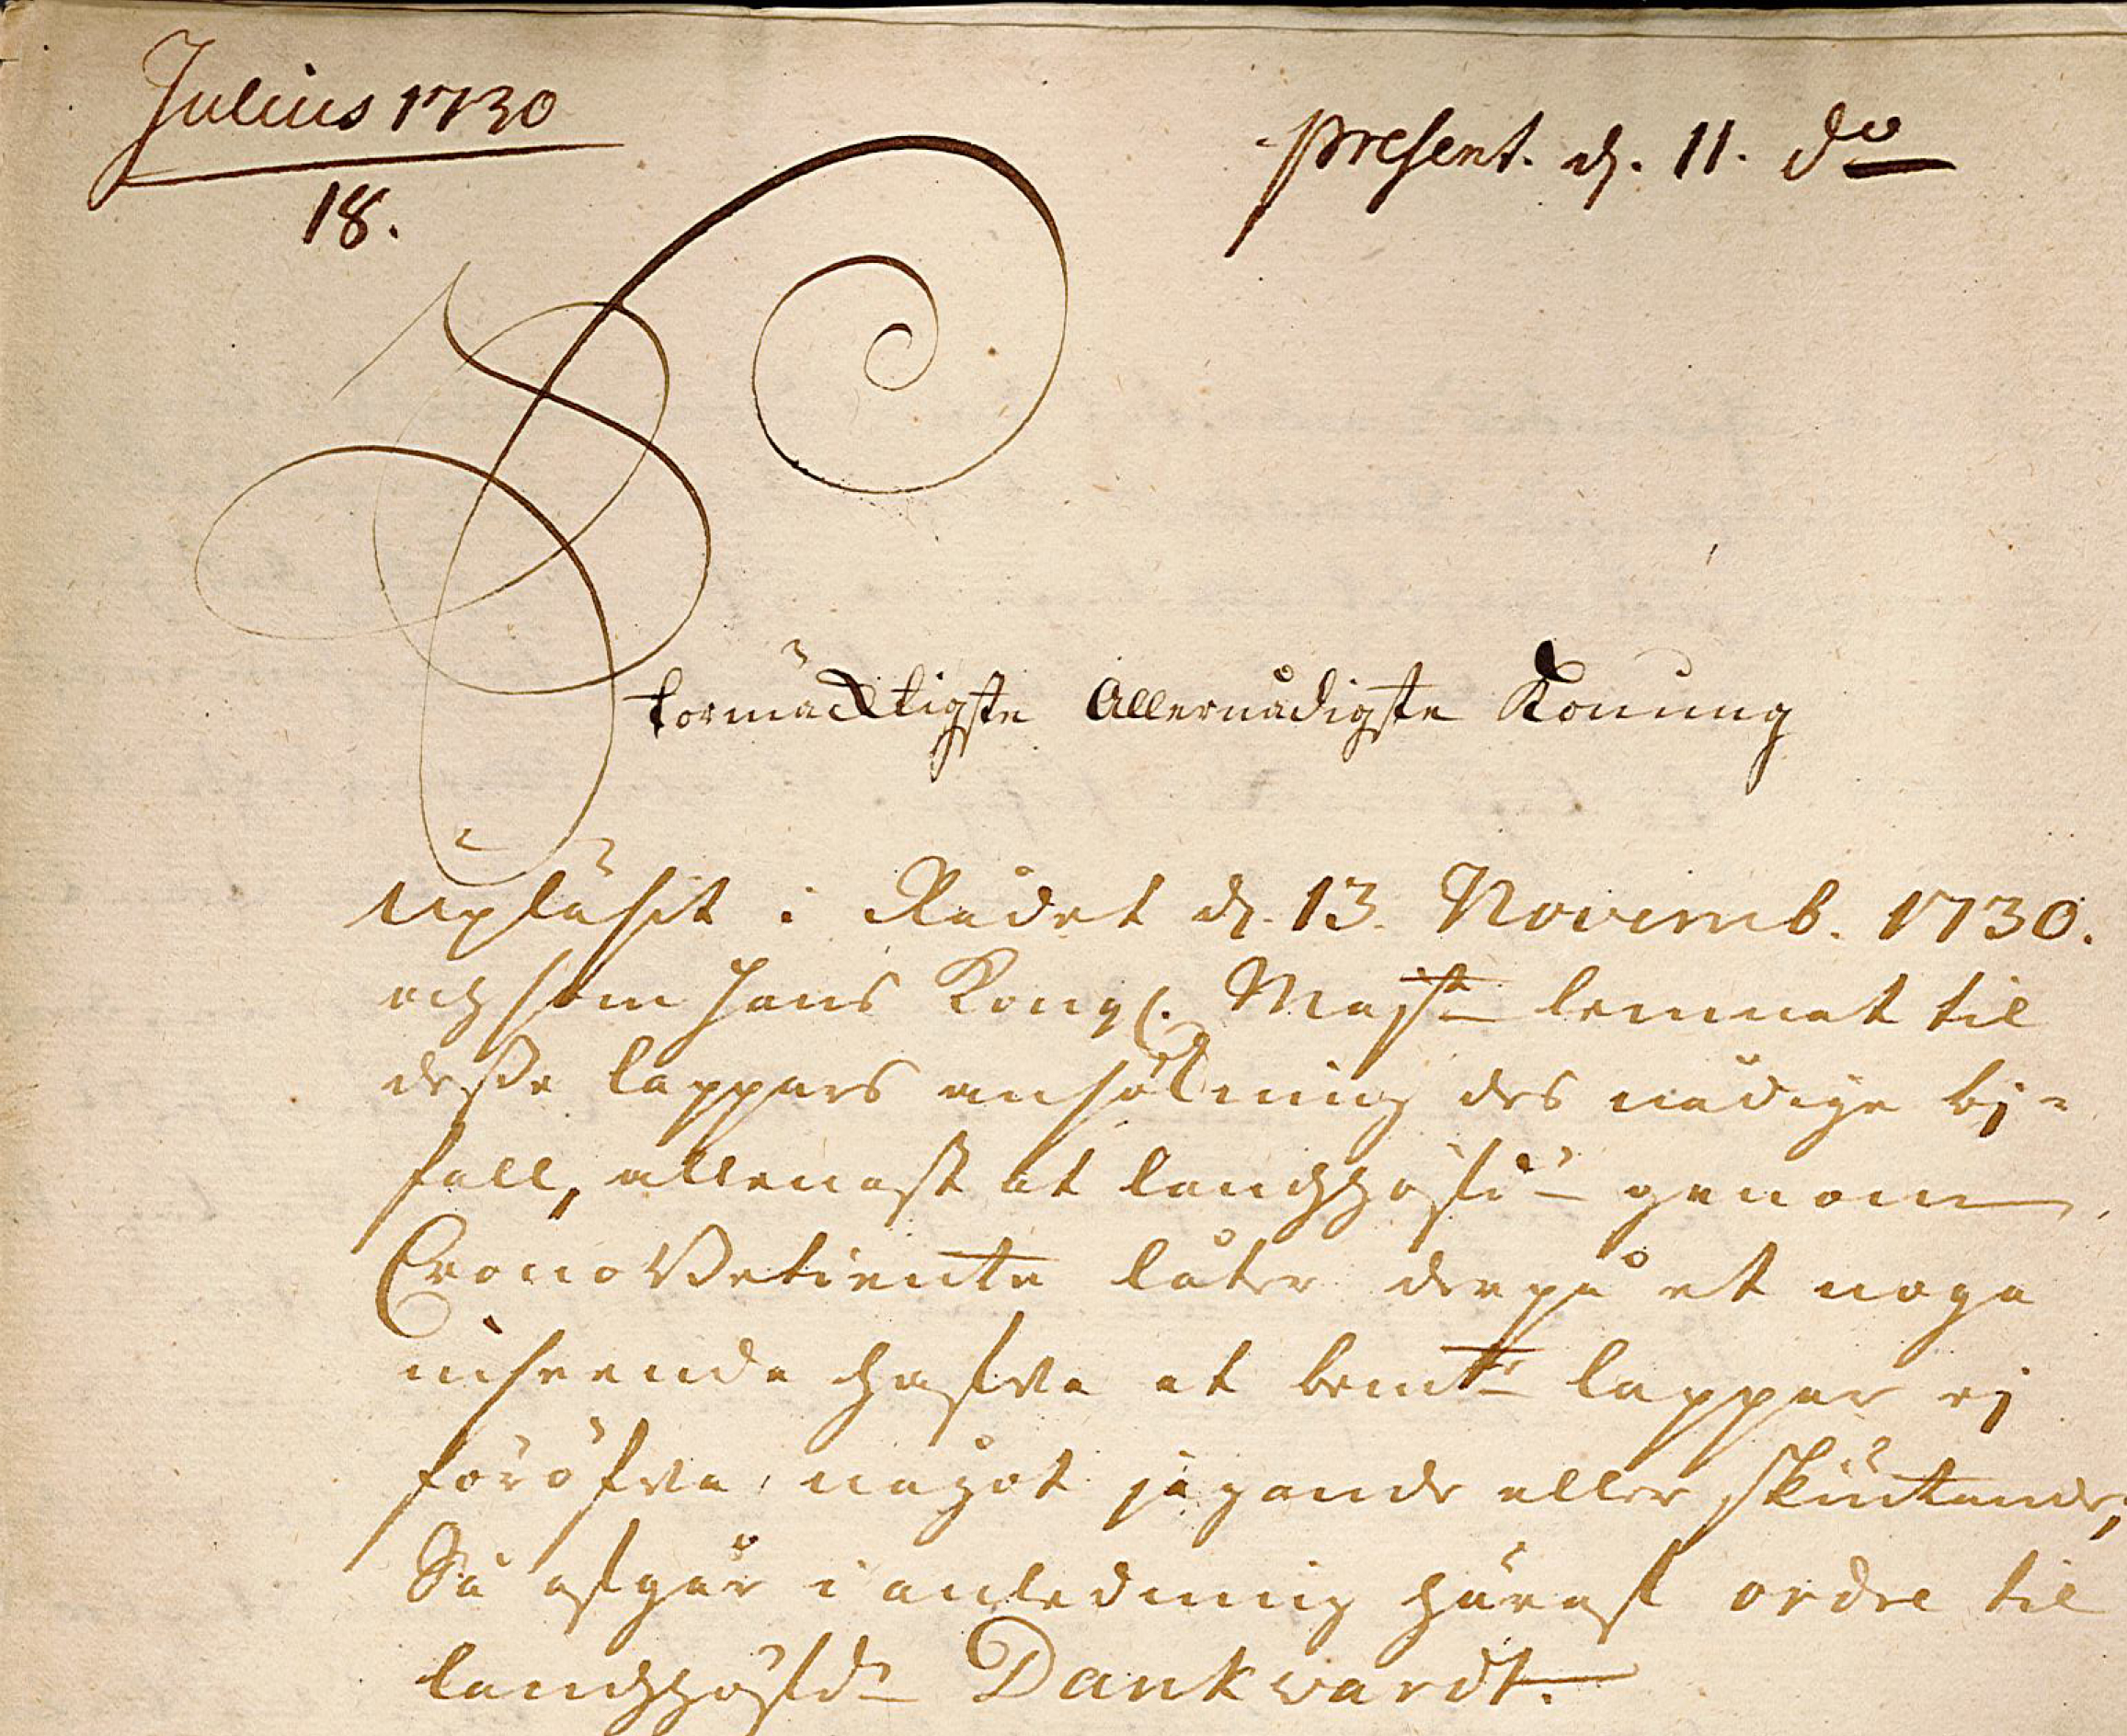 Julius 1730
18.
present. d. 11. do
Stormäcktigste Allernådigste Konung
Upläsit i Rådet d. 13. Novemb. 1730.
och som Hans Kongl. Majt lemnat til
desse lappars ansökning des nådige bi-
fall, allenast at landzhöfd. genom
CronoBetiente låter derpå et noga
inseende hafva at bemte lappar ej
föröfva något jagande eller skiutande,
Så afgår i anledning häraf ordre til
landzhöfd. Dankwardt.